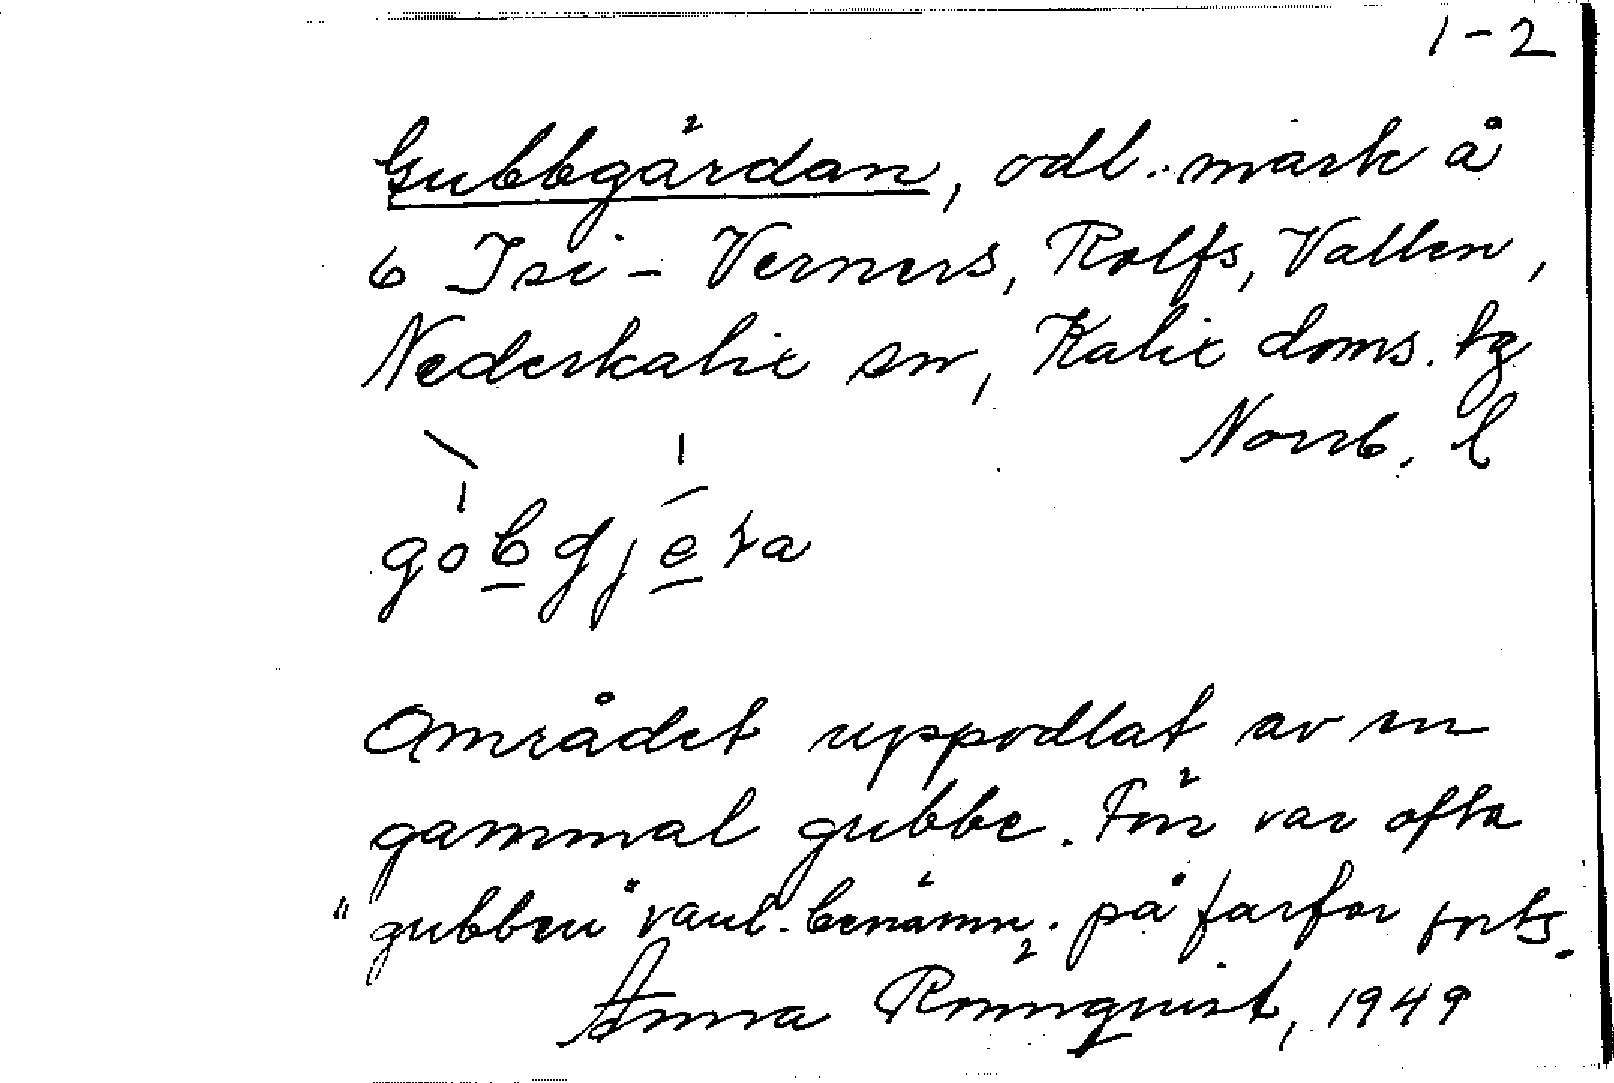 1-2
Gubbgärdan, odl. mark å
6 Isi - Verners, Rolfs, Vallen,
Nederkalix sn, Kalix doms. tg
Norrb. l
Området uppodlat av en
gammal gubbe. Förr var ofta
"gubben" vanl. benämn. på farfar forts.
Anna Rönnqvist, 1949